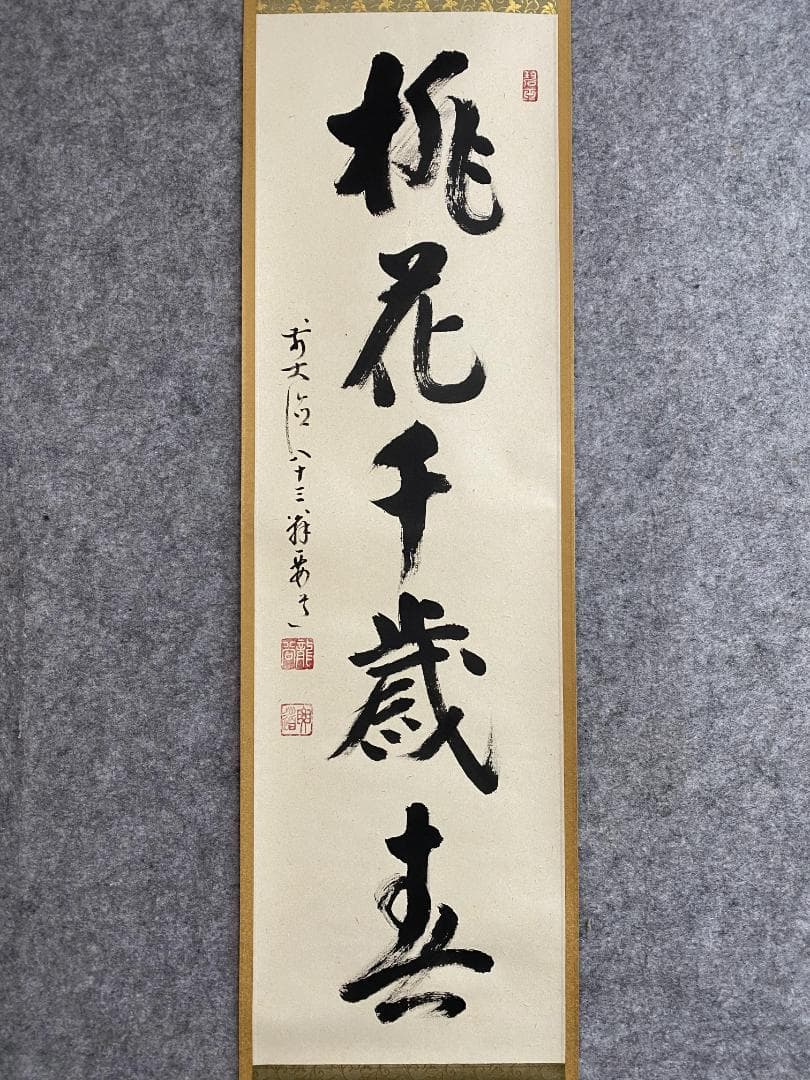 桃花千歳春
前大徳八十三翁要道